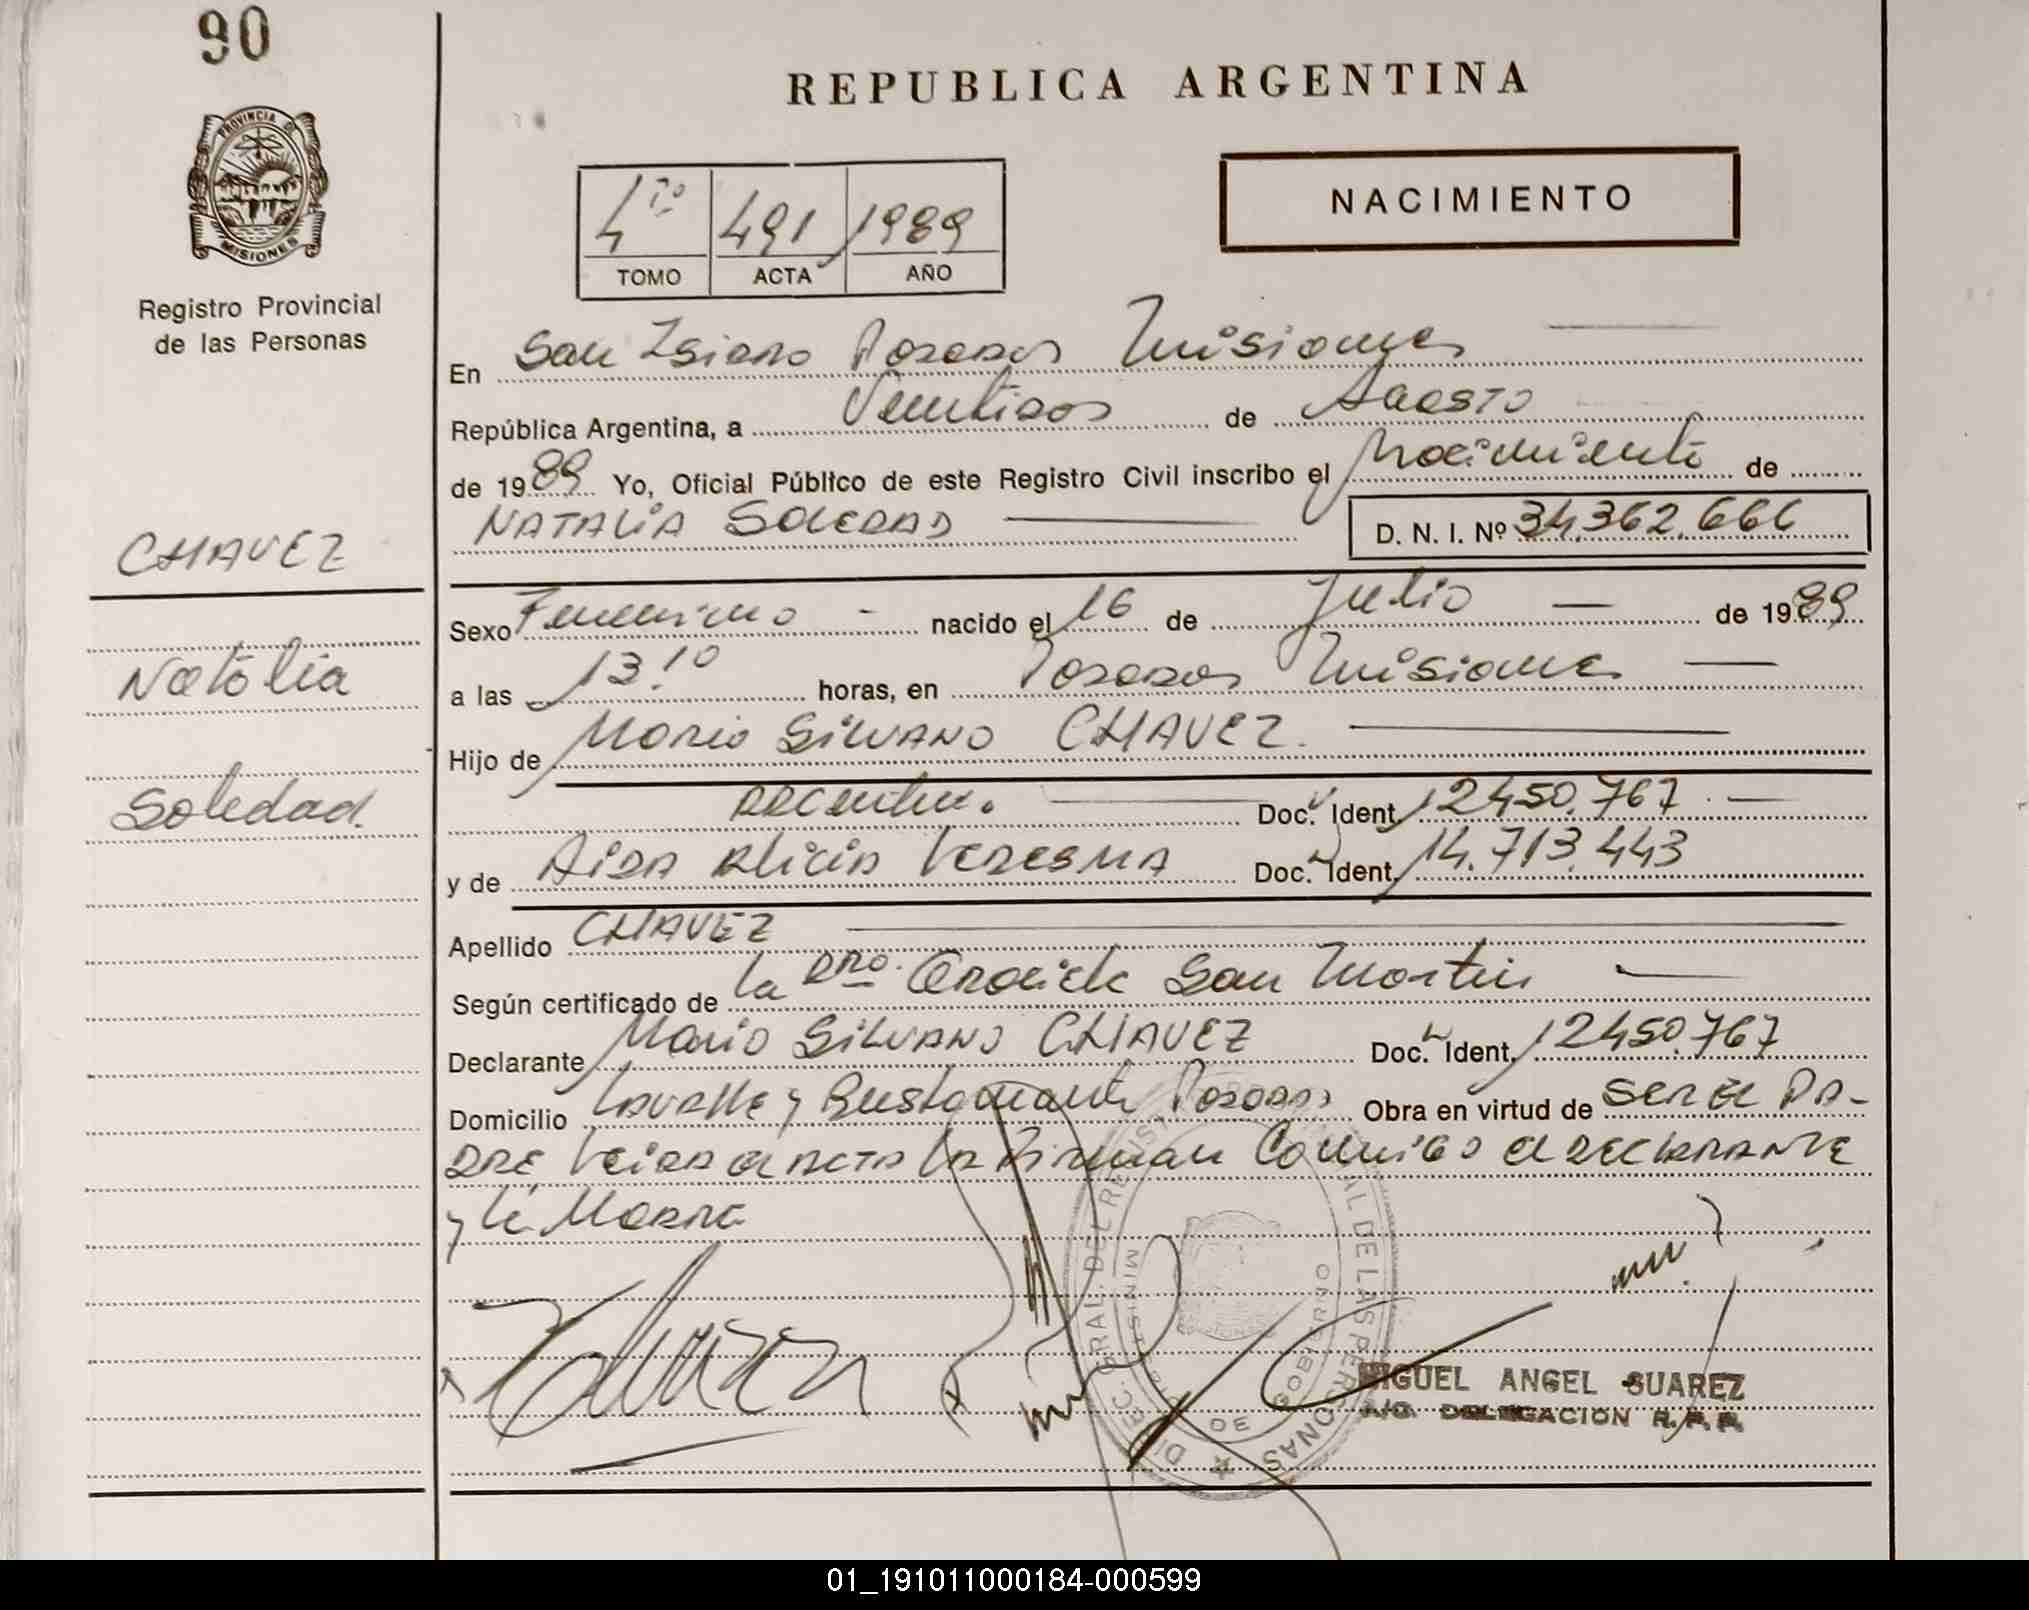 90
REPUBLICA ARGENTINA
PROVINCIA DE
MISIONES
Registro Provincial
de las Personas
4to 491 1989
TOMO ACTA AÑO
NACIMIENTO
En San Isidro Posadas Misiones
República Argentina, a Veintidos de Agosto
de 1989 Yo, Oficial Público de este Registro Civil inscribo el Nacimiento de
NATALIA SOLEDAD D. N. I. Nº 34.362.666
CHAVEZ
Natalia
Soledad
Sexo Femenino - nacido el 16 de Julio de 1989
a las 13.10 horas, en Posadas Misiones
Hijo de Mario SILVANO CHAVEZ.
Argentino. Doc. Ident. 12450.767
y de AIDA Alicia LEDESMA Doc. Ident. 14.713.443
Apellido CHAVEZ
Según certificado de la Dra. San Martin
Declarante Mario SILVANO CHAVEZ Doc. Ident. 12450.767
Domicilio Lavalle y Bustamante Posadas Obra en virtud de SER EL PA-
DRE Leida el ACTA La Firman Conmigo el DECLARANTE
y la Madre
DIREC. GRAL. DEL REGISTRO PROVINCIAL DE LAS PERSONAS
MINISTERIO DE GOBIERNO
MIGUEL ANGEL SUAREZ
A/C. DELEGACION R.P.P.
01_191011000184-000599